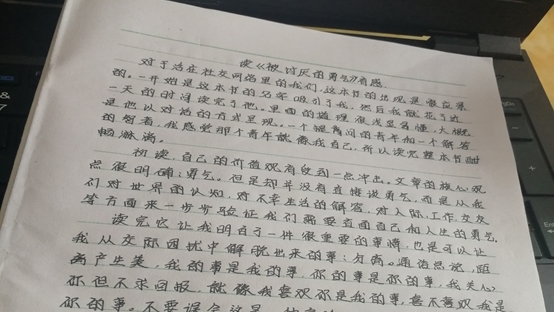 读《被讨厌的勇气》有感
对于活在社交网络里的我们,这本书的出现是很应景
的。一开始是这本书的名字吸引了我,然后我就花了近
一天的时间读完了他。里面的道理很浅显易懂,大概
是他以对话的方式呈现。一个提问的青年和一个解答
的智者,我感觉那个青年就像我自己,所以读完整本书酣
畅淋漓。
初读,自己的价值观有收到一点冲击。文章的核心观
点很明确:勇气。但是却并没有直接说勇气,而是从我
们对世界的认知,对不幸生活的解答,对人际、工作、交友
等方面来一步步验证我们需要直面自己和人生的勇气。
读完它让我明白了一件很重要的事情,也是可以让
我从交际困扰中解脱出来的事:分离。通俗点说,距
离产生美,我的事是我的事,你的事是你的事,我关心
你但不求回报,就像我喜欢你是我的事,喜不喜欢我是
你的事。不要误会这是